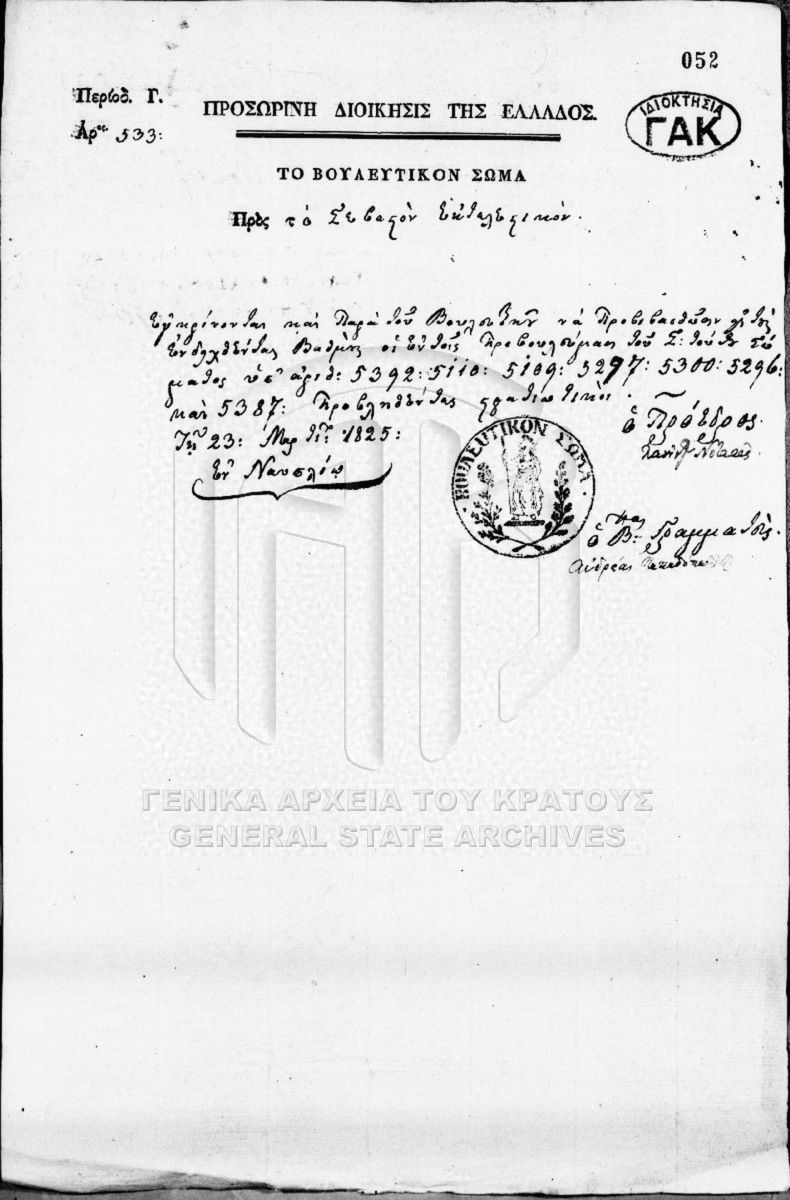 052
Περίοδ. Γ.
ΠΡΟΣΩΡΙΝΗ ΔΙΟΙΚΗΣΙΣ ΤΗΣ ΕΛΛΑΔΟΣ.
ΙΔΙΟΚΤΗΣΙΑ
ΓΑΚ
Αρθ. 533:
ΤΟ ΒΟΥΛΕΥΤΙΚΟΝ ΣΩΜΑ
Πρὸς τὸ Σεβαςὸν Ἐκτελεςικόν.
Ἐγκρίνονται καὶ παρὰ τοῦ Βουλευτικοῦ νὰ προβιβασθῶσιν εἰς τοὺς
ἐνδεχθέντας βαθμοὺς οἱ ἐν τοῖς προβουλεύμασι τοῦ Σ: τούτου σώ
ματος ὑπ' ἀριθ: 5392: 5110: 5109: 5297: 5300: 5296:
καὶ 5387: προβληθέντας ςρατιωτικοί.
Τῇ 23: Μαρτίου 1825:
Ἐν Ναυπλίῳ
ὁ Πρόεδρος.
Πανοῦτζος Νοταρᾶς.
ΒΟΥΛΕΥΤΙΚΟΝ ΣΩΜΑ
ὁ Β: Γραμματεὺς.
Ἀνδρέας
ΓΕΝΙΚΑ ΑΡΧΕΙΑ ΤΟΥ ΚΡΑΤΟΥΣ
GENERAL STATE ARCHIVES